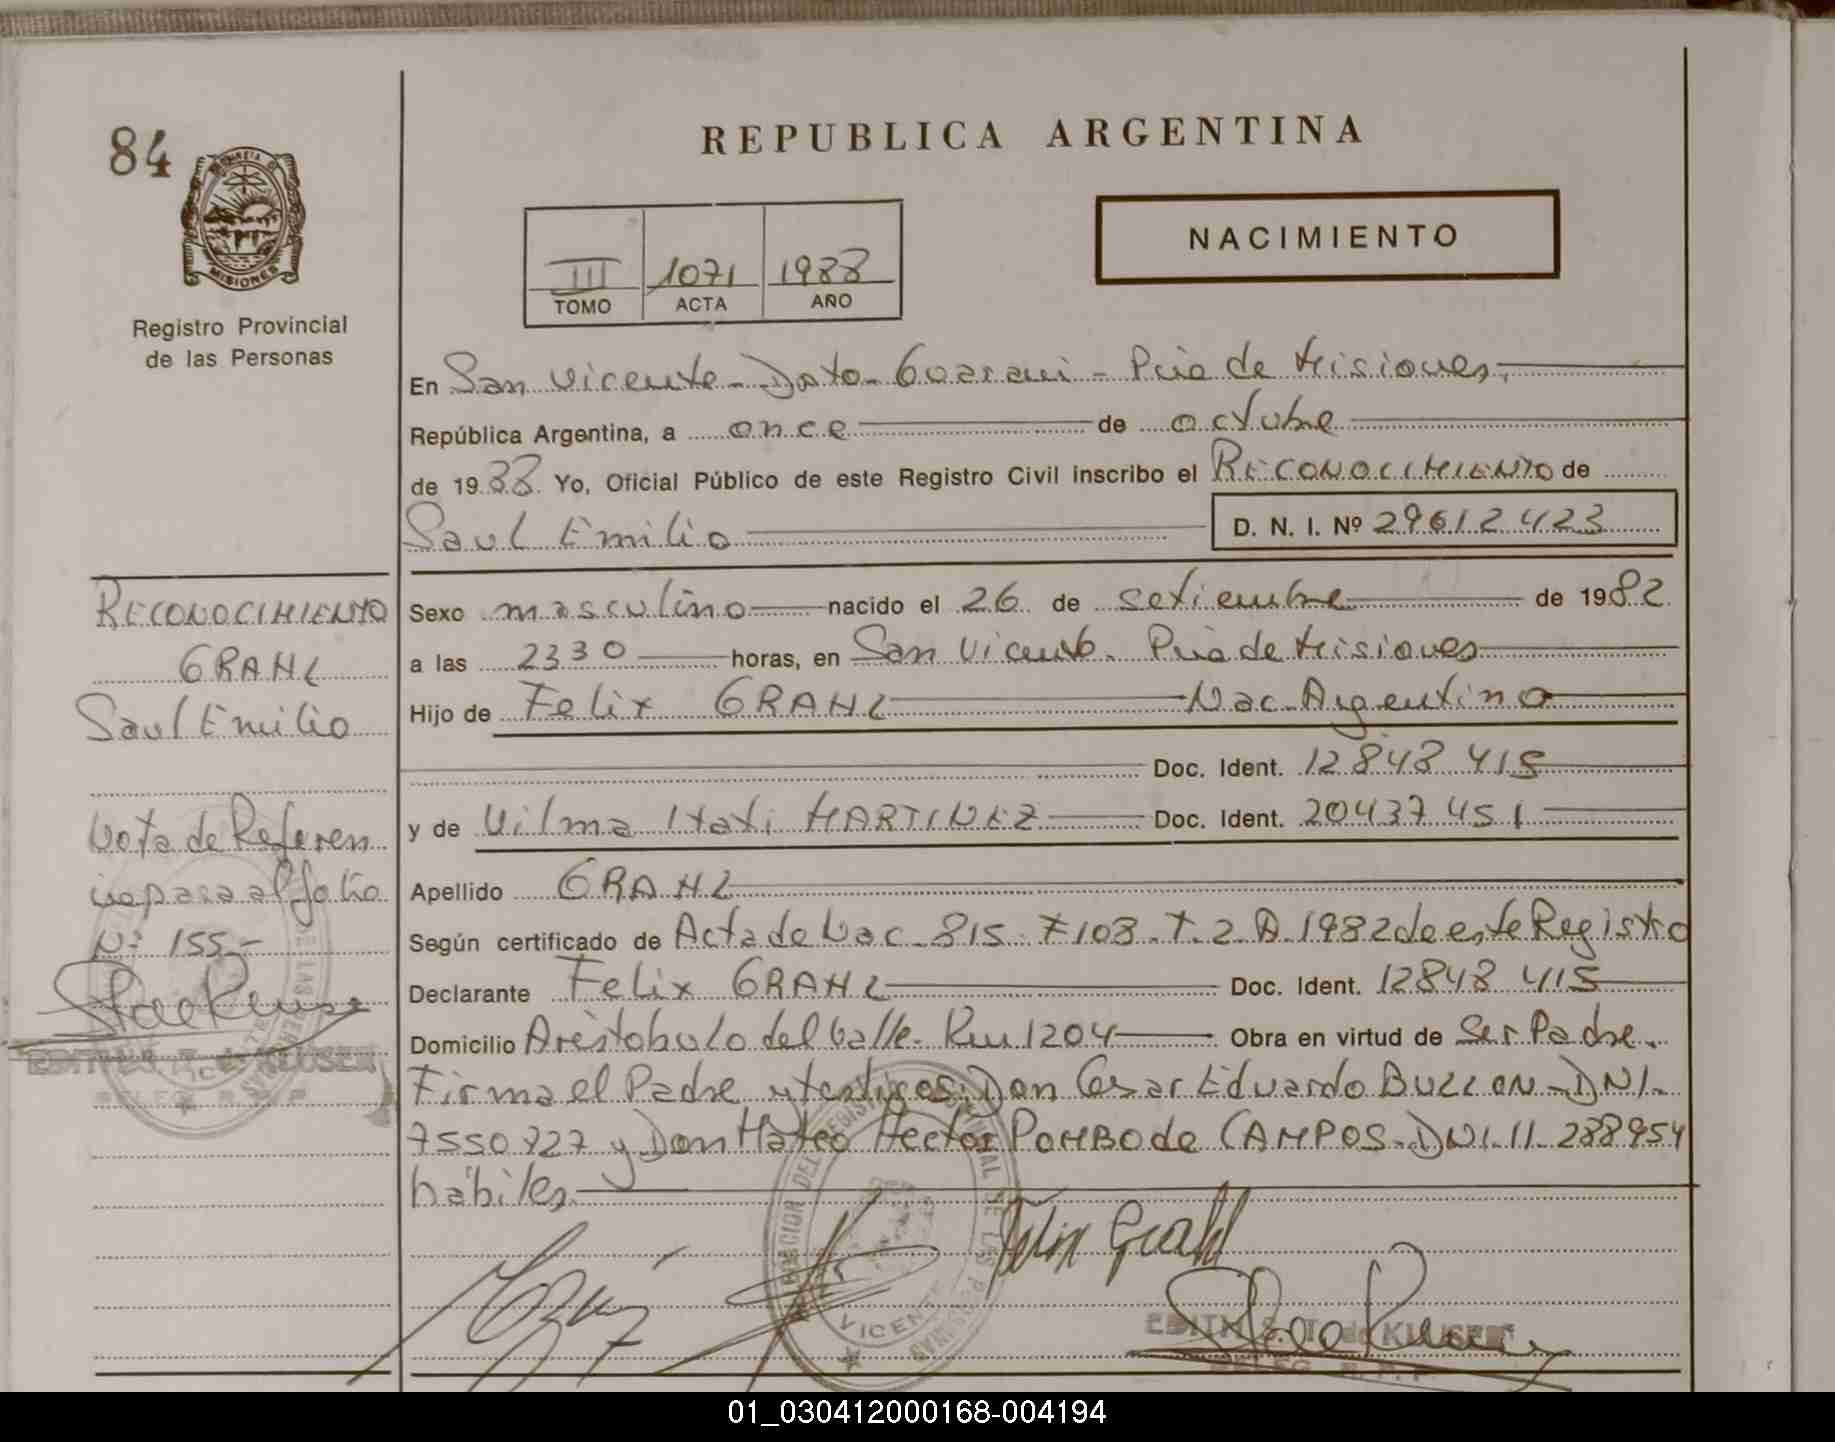 84
MISIONES
Registro Provincial
de las Personas
REPUBLICA ARGENTINA
III 1071 1988
TOMO ACTA AÑO
NACIMIENTO
En San Vicente - Dpto - Guarani - Pcia de Misiones,
República Argentina, a once de octubre
de 1988 Yo, Oficial Público de este Registro Civil inscribo el RECONOCIMIENTO de
Saul Emilio D. N. I. Nº 29612423
Sexo masculino nacido el 26 de setiembre de 1982
a las 2330 horas, en San Vicente. Pcia de Misiones
Hijo de Felix GRAHL Nac. Argentino
Doc. Ident. 12848 415
y de Vilma Itati MARTINEZ Doc. Ident. 20437 451
Apellido GRAHL
Según certificado de Acta de Nac. 815. F 108. T. 2. A. 1982 de este Registro
Declarante Felix GRAHL Doc. Ident. 12848 415
Domicilio Aristobulo del Valle. Km 1204 Obra en virtud de Ser Padre.
Firma el Padre y testigos: Don Cesar Eduardo BULLON - DNI-
7550827 y Don Mateo Hector POMBO de CAMPOS - DNI. 11. 288954
habiles.
Felix Grahl
EDITH S. T. de KLUSENER
DELEG. R. P. P.
RECONOCIMIENTO
GRAHL
Saul Emilio
Nota de Referen
cia pasa al folio
Nº 155.-
EDITH S. T. de KLUSENER
DELEG. R. P. P.
01_030412000168-004194